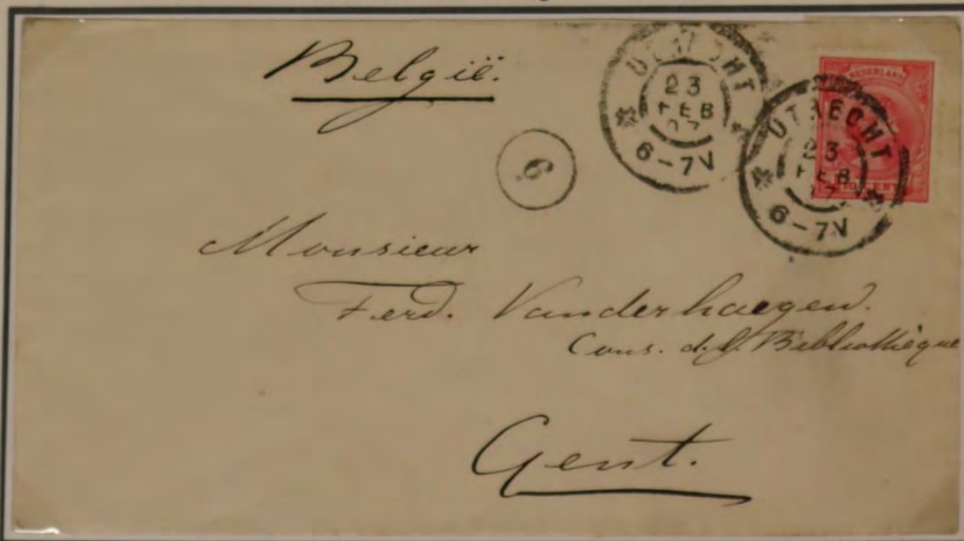 België.
UTRECHT
23
FEB
97
6-7N
UTRECHT
23
FEB
6-7N
NEDERLAND
10 CENT
6
Monsieur
Ferd. Vanderhaegen.
Cons. d. l. Bibliothèque
Gent.